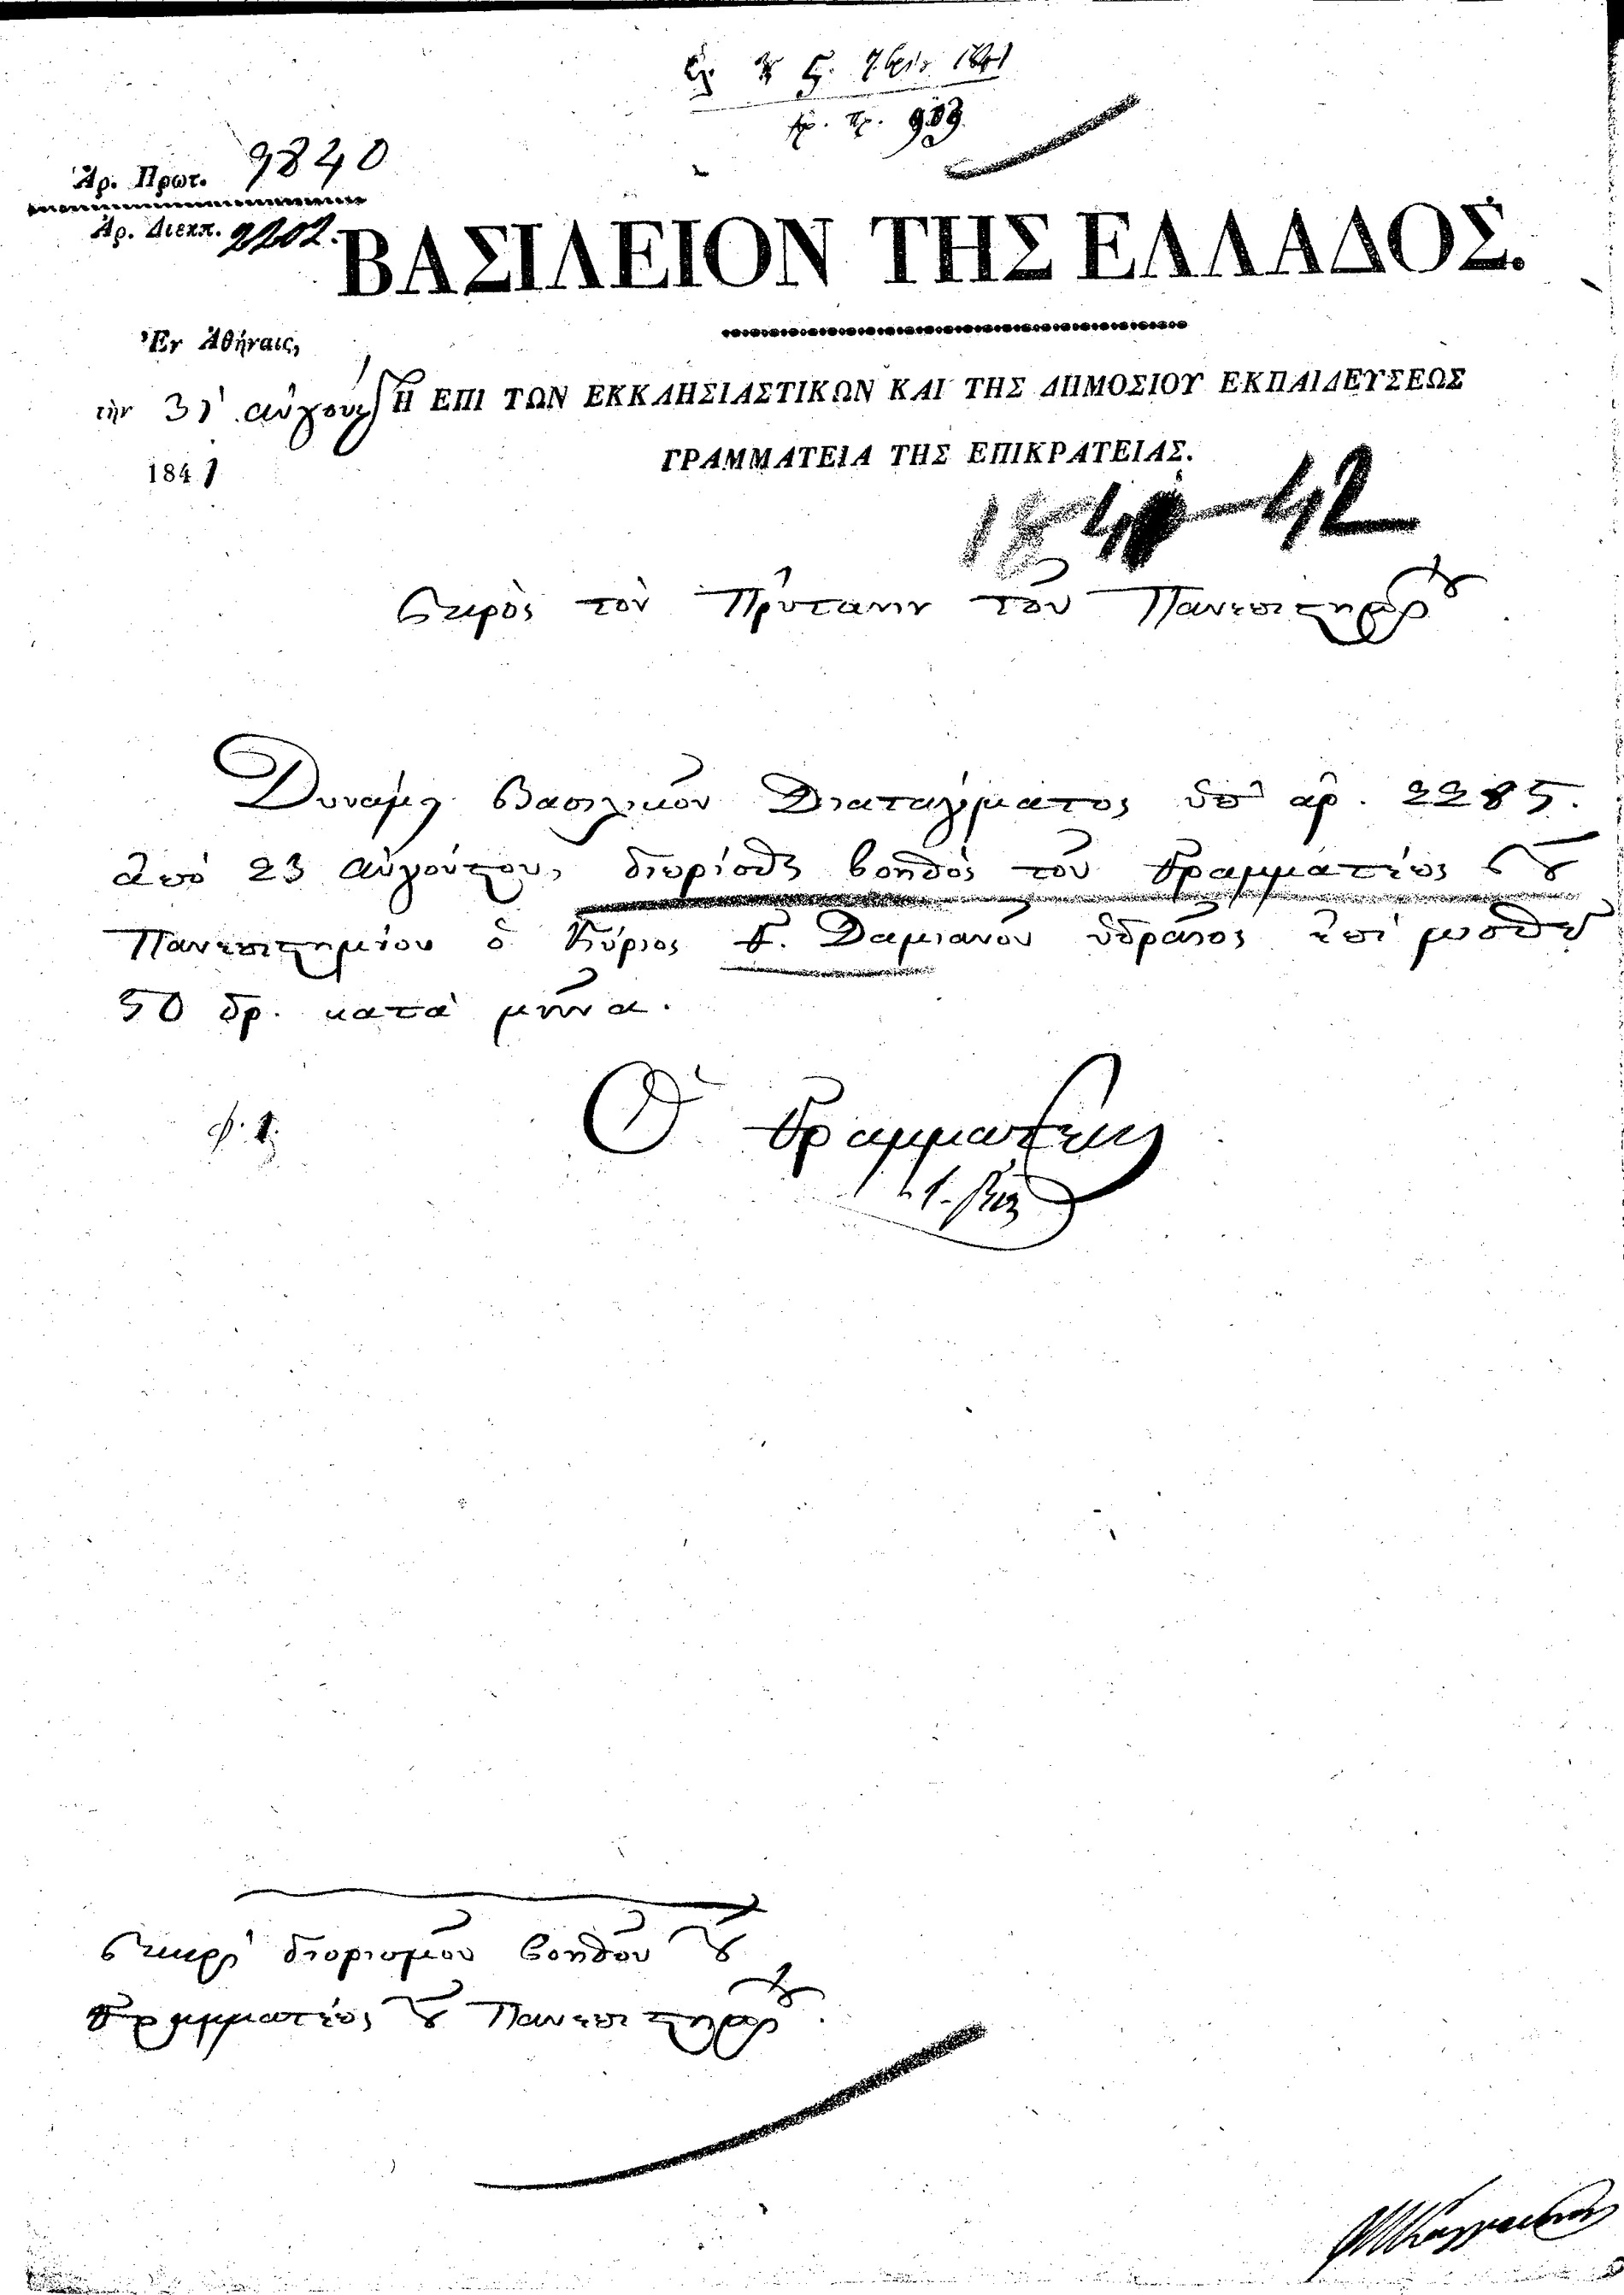 7βρίου 1841
Ἀρ. Πρ. 989
Ἀρ. Πρωτ. 9840
Ἀρ. Διεκπ. 9202.
ΒΑΣΙΛΕΙΟΝ ΤΗΣ ΕΛΛΑΔΟΣ.
Ἐν Ἀθήναις,
τὴν 31 αὐγούστ
184 1
Η ΕΠΙ ΤΩΝ ΕΚΚΛΗΣΙΑΣΤΙΚΩΝ ΚΑΙ ΤΗΣ ΔΗΜΟΣΙΟΥ ΕΚΠΑΙΔΕΥΣΕΩΣ
ΓΡΑΜΜΑΤΕΙΑ ΤΗΣ ΕΠΙΚΡΑΤΕΙΑΣ.
1841-42
πρὸς τὸν Πρύτανιν τοῦ Πανεπιστημίου
Δυνάμει Βασιλικοῦ Διατάγματος ὑπ' αρ. 2285.
ἀπό 23 αὐγούστου, διωρίσθη βοηθὸς τοῦ Γραμματέως τοῦ
Πανεπιστημίου ὁ Κύριος Γ. Δαμιανοῦ ὑδραῖος ἐπί μισθῷ
50 δρ. κατὰ μῆνα.
Ὁ Γραμματεὺς
περὶ διορισμοῦ βοηθοῦ τοῦ
Γραμματέως τοῦ Πανεπιστημίου.